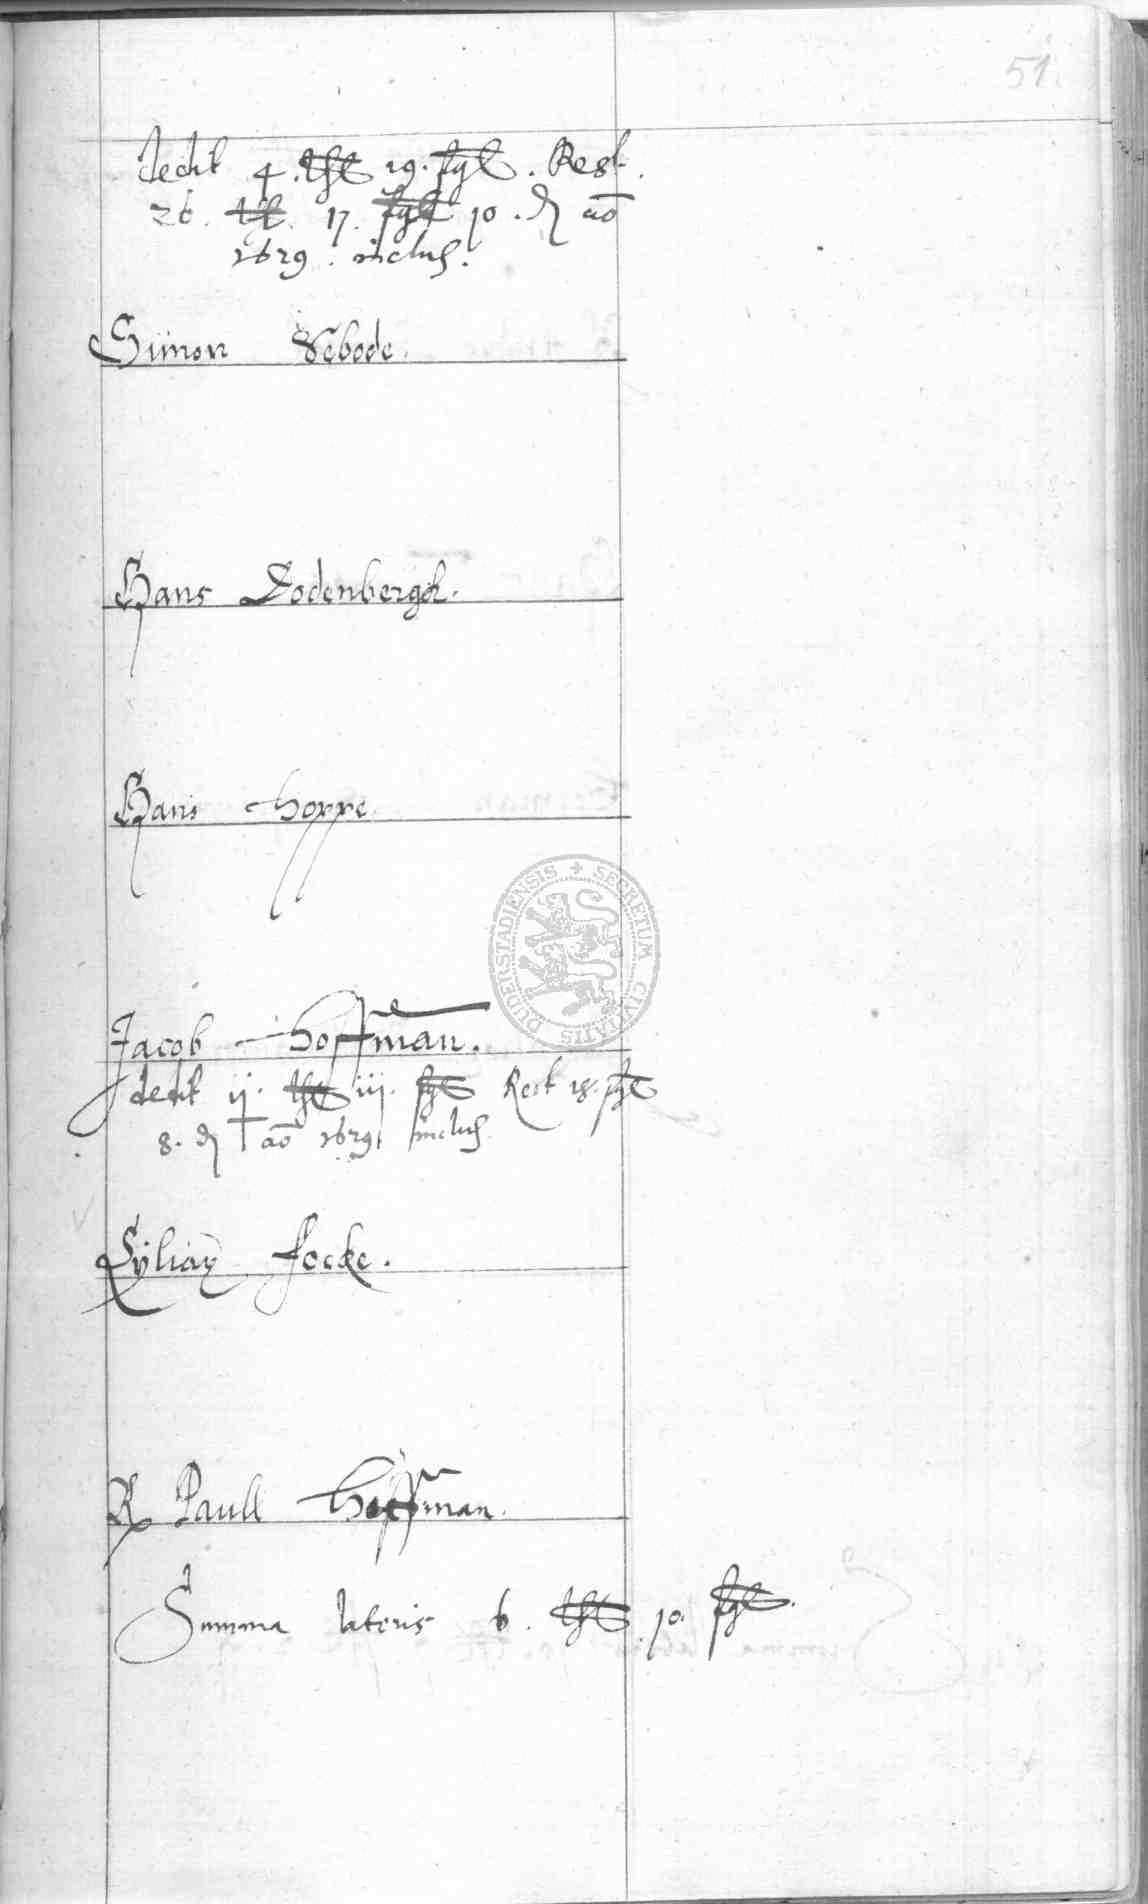 51.
dedit 4. thl 19. fgl. Rest.
26. thl. 17. fgl 10. ₰ aō
1629. inclus.
Simon Sebode.
Hans Dodenbergk.
Hans Hoppe.
DUDERSTADIENSIS + SECRETUM CIVITATIS
Jacob Hoffman.
dedit ij. thl iij. fgl Rest 18. fgl
8. ₰ aō 1629 inclus.
Cyliax Focke.
R Paull Hoffman.
Summa lateris 6. thl 10. fgl.